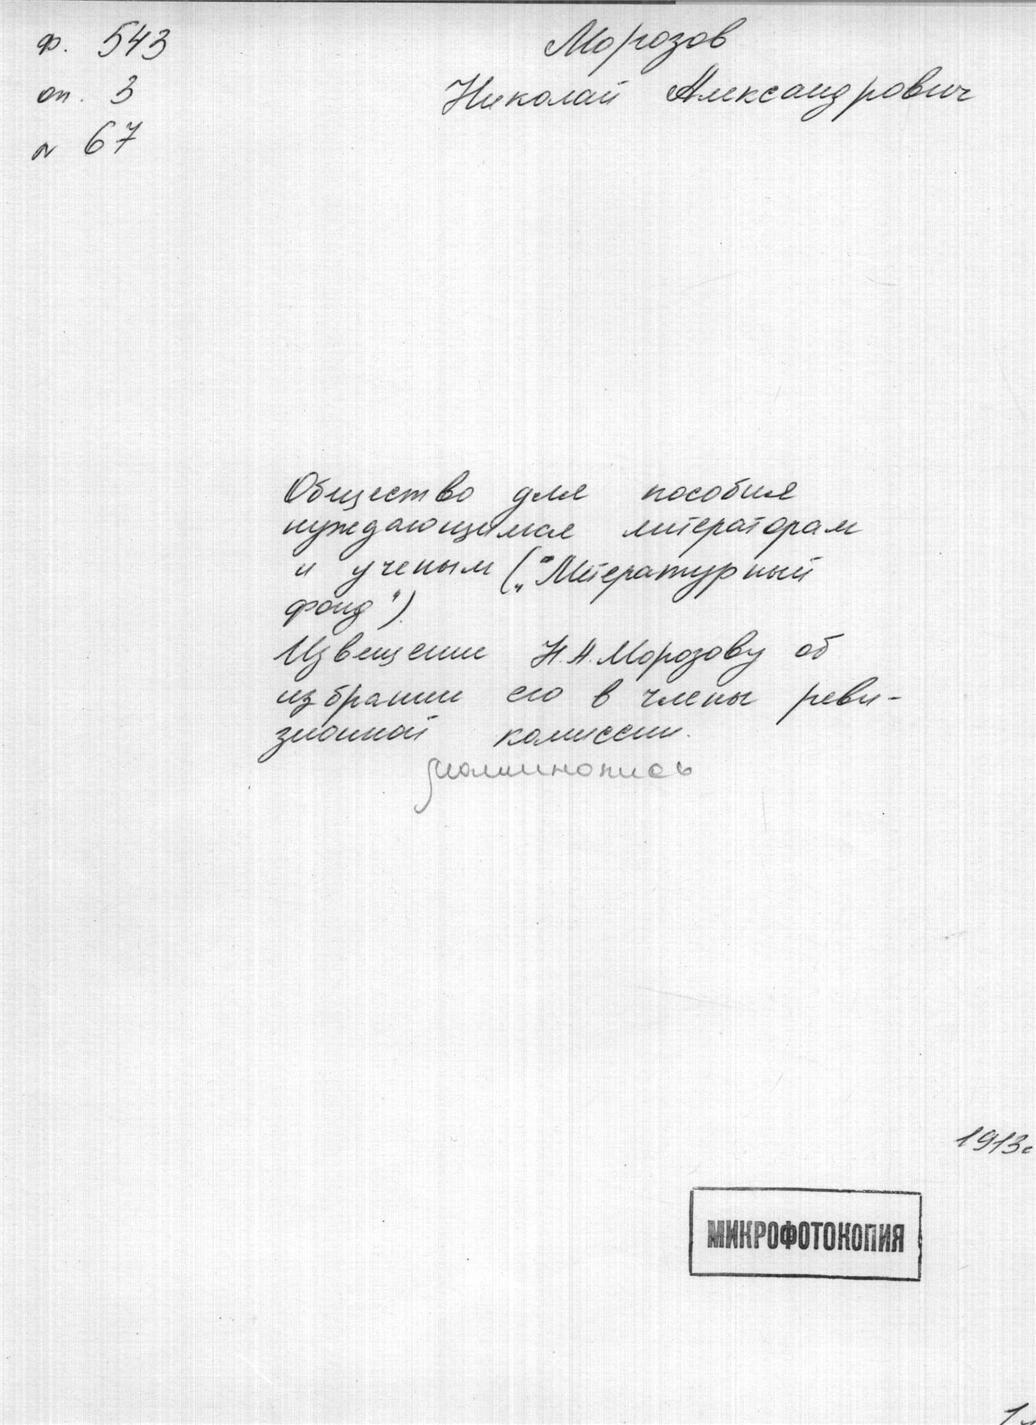 ф. 543
оп. 3
№ 67
Морозов
Николай Александрович
Общество для пособия
нуждающимся литераторам
и ученым („Литературный
фонд").
Извещение Н.А. Морозову об
избрании его в члены реви-
зионной комиссии.
машинопись
1913г
МИКРОФОТОКОПИЯ